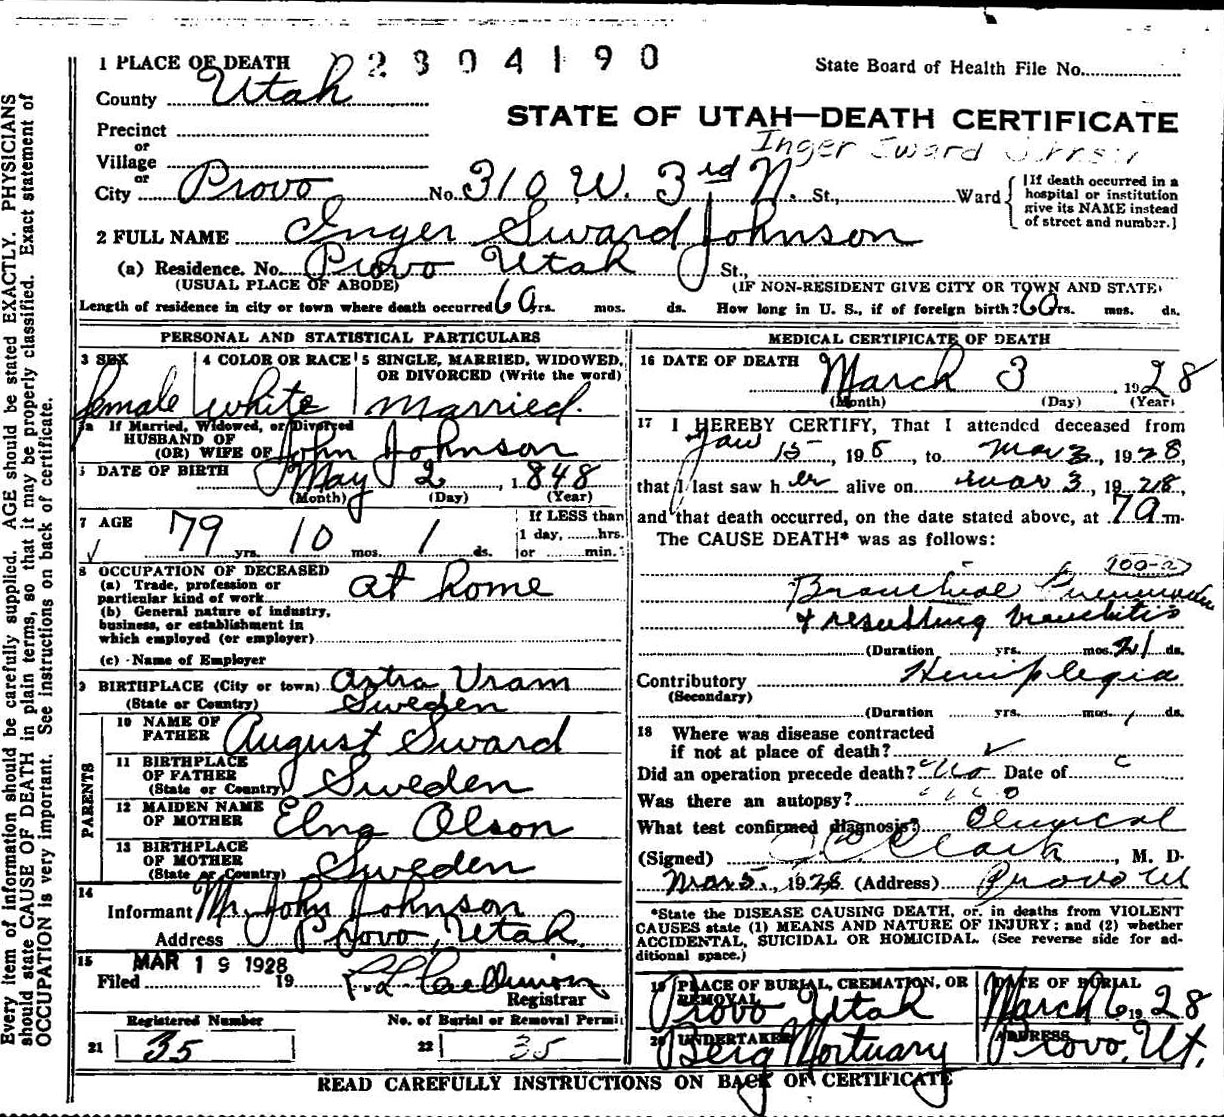 2304190
1 PLACE OF DEATH
State Board of Health File No.
County Utah
STATE OF UTAH—DEATH CERTIFICATE
Precinct
or
Village
Inger Sward
or
City Provo No. 310 W. 3rd N. St., Ward
{If death occurred in a
hospital or institution
give its NAME instead
of street and number.}
2 FULL NAME Inger Sward Johnson
(a) Residence. No. Provo Utah St.,
(USUAL PLACE OF ABODE) (IF NON-RESIDENT GIVE CITY OR TOWN AND STATE)
Length of residence in city or town where death occurred 60 yrs. mos. ds. How long in U. S., if of foreign birth? 60 yrs. mos. ds.
PERSONAL AND STATISTICAL PARTICULARS
3 SEX
female
4 COLOR OR RACE
white
5 SINGLE, MARRIED, WIDOWED,
OR DIVORCED (Write the word)
Married.
5a If Married, Widowed, or Divorced
HUSBAND OF
(OR) WIFE OF John Johnson
DATE OF BIRTH May 2, 1848
(Month) (Day) (Year)
7 AGE 79 yrs. 10 mos. 1 ds.
If LESS than
1 day, hrs.
or min.
8 OCCUPATION OF DECEASED
(a) Trade, profession or
particular kind of work at home
(b) General nature of industry,
business, or establishment in
which employed (or employer)
(c) Name of Employer
9 BIRTHPLACE (City or town) Astra Vram
(State or Country) Sweden
PARENTS
10 NAME OF
FATHER August Sward
11 BIRTHPLACE
OF FATHER
(State or Country) Sweden
12 MAIDEN NAME
OF MOTHER Elna Olson
13 BIRTHPLACE
OF MOTHER
(State or Country) Sweden
14
Informant Mr. John Johnson
Address Provo, Utah.
15 MAR 19 1928
Filed 19
Registrar
Registered Number
21 35
No. of Burial or Removal Permit
22 35
MEDICAL CERTIFICATE OF DEATH
16 DATE OF DEATH
March 3 1928
(Month) (Day) (Year)
17 I HEREBY CERTIFY, That I attended deceased from
Jan 15, 198, to Mar 3, 1928,
that I last saw her alive on mar 3, 1928,
and that death occurred, on the date stated above, at 7 a m.
The CAUSE DEATH* was as follows:
100-2
Bronchial Pneumonia
& resulting bronchitis
(Duration yrs. mos. 21 ds.
Contributory Hemiplegia
(Secondary)
(Duration yrs. mos. ds.
18 Where was disease contracted
if not at place of death?
Did an operation precede death? No Date of
Was there an autopsy? no
What test confirmed diagnosis? Clinical
(Signed) Clark, M. D.
Mar 5, 1928 (Address) Provo Ut
*State the DISEASE CAUSING DEATH, or, in deaths from VIOLENT
CAUSES state (1) MEANS AND NATURE OF INJURY; and (2) whether
ACCIDENTAL, SUICIDAL OR HOMICIDAL. (See reverse side for ad-
ditional space.)
19 PLACE OF BURIAL, CREMATION, OR
REMOVAL
Provo Utah
DATE OF BURIAL
March 6 1928
20 UNDERTAKER
Berg Mortuary
ADDRESS
Provo, Ut.
READ CAREFULLY INSTRUCTIONS ON BACK OF CERTIFICATE
Every item of information should be carefully supplied. AGE should be stated EXACTLY. PHYSICIANS
should state CAUSE OF DEATH in plain terms, so that it may be properly classified. Exact statement of
OCCUPATION is very important. See instructions on back of certificate.